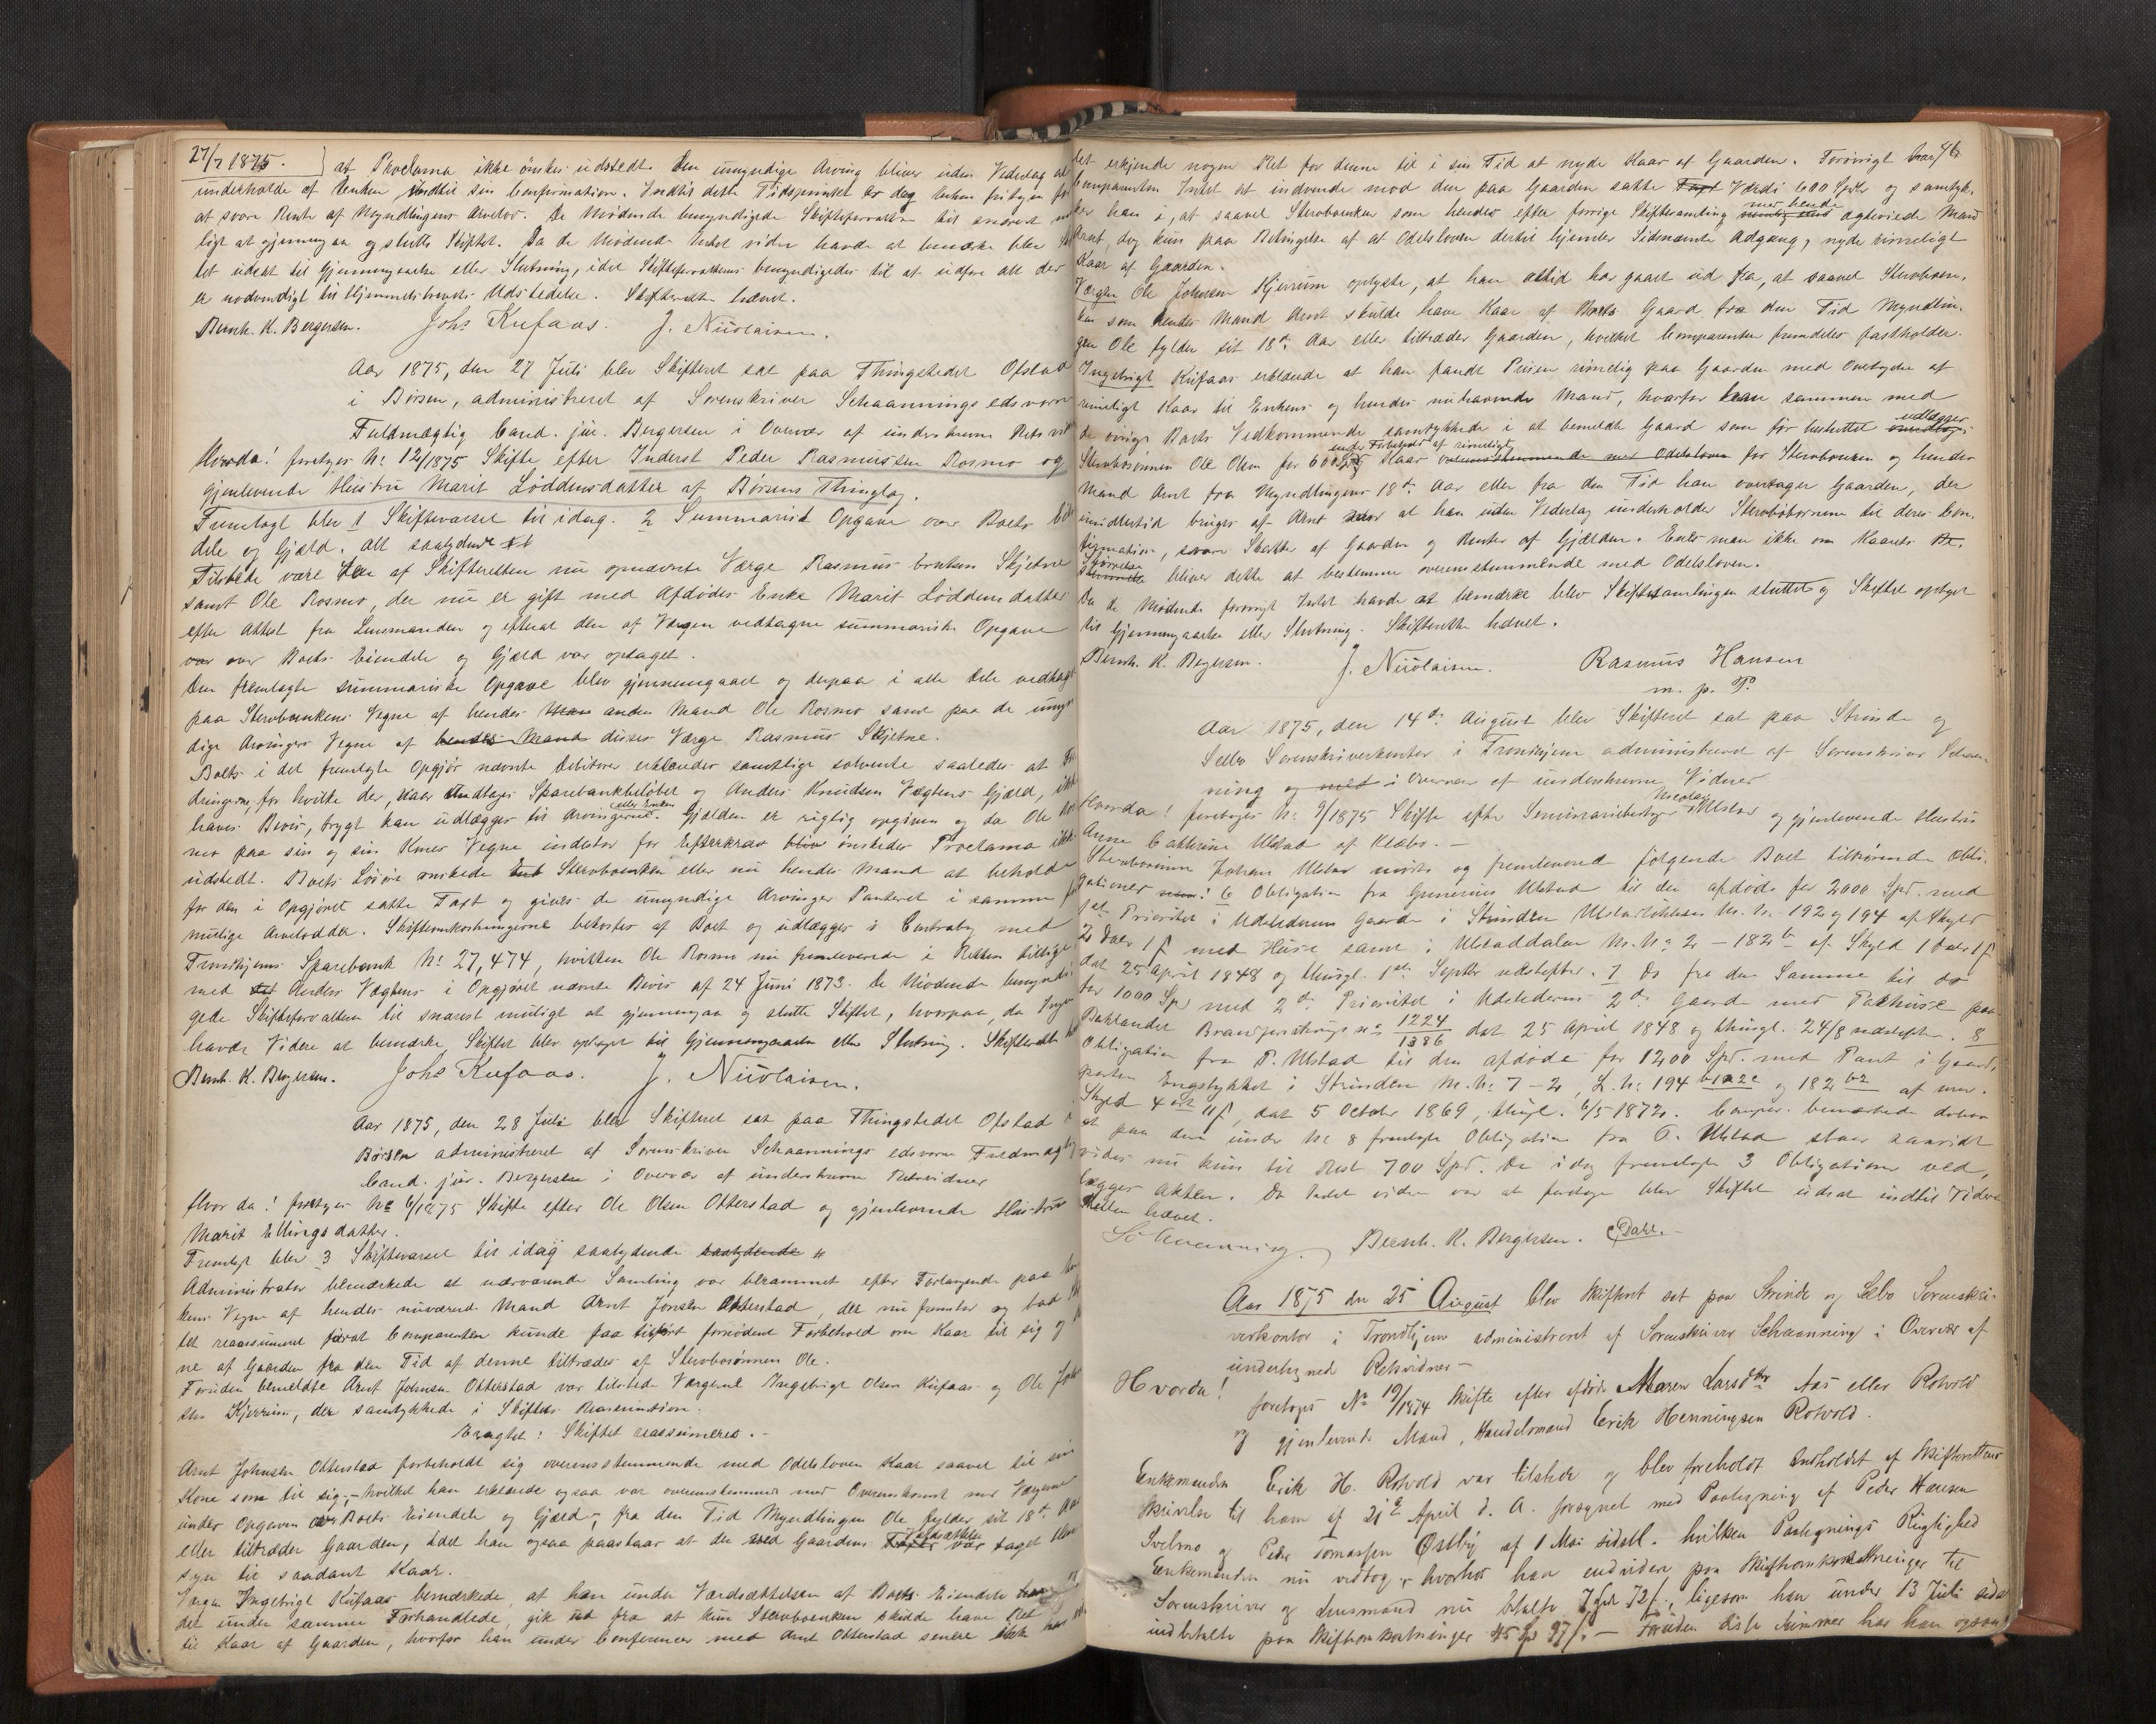 27/7 1875. } at Proclama ikke ønskes udstedt. Den umyndige Arving bliver uden Vederlag at
underholde af Enken indtil sin Confirmation. Indtil dette Tidspunkt er dog Enken fritagen
at svare Rente af Myndlingens Arvelod. De Mødende bemyndigede Skifteforvalteren til snarest
ligt at gjennemgaa og slutte Skiftet. Da de Mødende Intet videre havde at bemærke blev
tet udsat til Gjennemgaaelse eller Slutning, idet Skifteforvalteren bemyndigedes til at udføre alt der
er nødvendigt til Hjemmelsbrevs Udstedelse. Skifteretten hævet.
Bernh. K. Bergersen. Johs Kufaas. J. Nicolaisen.
Aar 1875, den 27 Juli blev Skifteret sat paa Thingstedet Ofstad
i Børsen, administreret af Sorenskriver Schaannings edsvorne
Fuldmægtig Cand. jur. Bergersen i Overvær af underskrevne Retsvid
Hvorda! foretoges No 12/1875 Skifte efter Inderst Peder Rasmussen Rosmo og
gjenlevende Hustru Marit Løddensdatter af Børsens Thinglag.
Fremlagt blev 1 Skiftevarsel til idag. 2 Summarisk Opgave over Boets
dele og Gjæld. Alt saalydende
Tilstede vare den af Skifteretten nu opnævnte Værge Rasmus Skjetne
samt Ole Rosmo, der nu er gift med Afdødes Enke Marit Løddensdatter
efter Attest fra Lensmanden og efterat den af Værgen vedtagne summariske Opgave
var over Boets Eiendele og Gjæld var optaget.
Den fremlagte summariske Opgave blev gjennemgaaet og derpaa i alle Dele vedtaget
paa Stervboenkens Vegne af hendes Man anden Mand Ole Rosmo samt paa de umyn
dige Arvingers Vegne af hendes Mand disses Værge Rasmus Skjetne.
Boets i det fremlagte Opgjør nævnte Debitorer erklæredes samtlige solvente saaledes at
dringerne, for hvilke der, naar undtages Sparebankbeløbet og Anders Knudsen Vægtens Gjæld,
haves Bevis, trygt kan udlægges til Arvingerne eller Enken. Gjælden er rigtig opgiven og da Ole
mo paa sin og sin Kones Vegne indestaar for Efterkrav bliver ønskedes Proclama ikke
udstedt. Boets Løsøre ønskede Stervboenken eller nu hendes Mand at beholde
for den i Opgjøret satte Taxt og gives de umyndige Arvinger Panteret i samme
mulige Arvelodder. Skifteomkostningerne bekostes af Boet og udlægges i Contrabog med
Trondhjems Sparebank No 27,474, hvilken Ole Rosmo nu fremleverede i Retten tillige
med det Anders Vægtens i Opgjøret nævnte Bevis af 24 Juni 1873. De Mødende bemyndi
gede Skifteforvalteren til snarest muligt at gjennemgaa og slutte Skiftet, hvorpaa, da Ingen
havde Videre at bemærke, Skiftet blev optaget til Gjennemgaaelse eller Slutning. Skifteretten
Bernh. K. Bergersen. Johs Kufaas. J. Nicolaisen.
Aar 1875, den 28 Juli blev Skifteret sat paa Thingstedet Ofstad i
Børsen administreret af Sorenskriver Schaannings edsvorne Fuldmægtig
Cand. jur. Bergersen i Overvær af underskrevne Retsvidner
Hvor da! foretoges No 6/1875 Skifte efter Ole Olsen Otterstad og gjenlevende Hustru
Marit Ellingsdatter.
Fremlagt blev 3 Skiftevarsel til idag saalydende saalydende
Administrator bemærkede at nærværende Samling var berammet efter Forlangende paa
kens Vegne af hendes nuværende Mand Arnt Jonsen Otterstad, der nu fremstod og bad
tet reassumeret forat Comparenten kunde faa tilført fornødent Forbehold om Kaar til sig og
ne af Gaarden fra den Tid af denne tiltrædes af Stervbosønnen Ole.
Foruden bemeldte Arnt Johnsen Otterstad var tilstede Værgerne Ingebrigt Olsen Kufaas og Ole John
sen Kjerrum, der samtykkede i Skiftets Reassumtion.
Eragtet: Skiftet reassumeres.
Arnt Johnsen Otterstad forbeholdt sig overensstemmende med Odelsloven Kaar saavel til sin
Kone som til sig, – hvilket han erklærede ogsaa var overensstemmende med Overenskomst med Værgerne
under Opgaven over Boets Eiendele og Gjæld, – fra den Tid Myndlingen Ole fylder sit 18de Aar
eller tiltræder Gaarden, idet han ogsaa paastaar at der ved Gaardens Værdsættelse var taget Hen
syn til saadant Kaar.
Værgen Ingebrigt Kufaas bemærkede, at han under Værdsættelsen af Boets Eiendele
det under samme Forhandlede, gik ud fra at kun Stervboenken skulde have Ret
til Kaar af Gaarden, hvorfor han under Conferencer med Arnt Otterstad senere ikke har
46
det erkjende nogen Ret for denne til i sin Tid at nyde Kaar af Gaarden. Forøvrigt havde
Comparenten Intet at indvende mod den paa Gaarden satte Taxt Værdi 600 Spdlr og samtyk,
ker han i, at saavel Stervboenken som hendes efter forrige Skiftesamling med hende ægteviede Mand
Arnt, dog kun paa Betingelse af at Odelsloven dertil hjemler Sidstnævnte Adgang, nyde rimeligt
Kaar af Gaarden.
Værgen Ole Johnsen Kjerrum oplyste, at han altid har gaaet ud fra, at saavel Stervboen,
ken som hendes Mand Arnt skulde have Kaar af Boets Gaard fra den Tid Myndlin,
gen Ole fylder sit 18de Aar eller tiltræder Gaarden, hvilket Comparenten fremdeles fastholder.
Ingebrigt Kufaas erklærede at han fandt Prisen rimelig paa Gaarden med Overtagelse af
rimeligt Kaar til Enken og hendes nuhavende Mand, hvorfor han sammen med
de øvrige Boets Vedkommende samtykkede i at bemeldte Gaard som før besluttet udlægges
Stervbosønnen Ole Olsen for 600 Spd under Forbehold af rimeligt Kaar overensstemmende med Odelsloven for Stervboenken og hendes
Mand Arnt fra Myndlingens 18de Aar eller fra den Tid han overtager Gaarden, der
imidlertid bruges af Arnt mod at han uden Vederlag underholder Stervbobørnene til deres Con,
firmation, svarer Skatter af Gaarden og Renter af Gjælden. Enes man ikke om Kaarets
Størrelse bliver dette at bestemme overensstemmende med Odelsloven.
Da de Mødende forøvrigt Intet havde at bemærke blev Skiftesamlingen sluttet og Skiftet optaget
til Gjennemgaaelse eller Slutning. Skifteretten hævet.
Bernh. K. Bergersen. J. Nicolaisen. Rasmus Hansen
m. p. P.
Aar 1875, den 14de August blev Skifteret sat paa Strinde og
Selbo Sorenskriverkontor i Trondhjem administreret af Sorenskriver Schaan-
ning og med i Overvær af underskrevne Vidner
Hvorda! foretoges No 9/1875 Skifte efter Seminariebestyrer Nicolai Ulstad og gjenlevende Hustru
Anne Cathrine Ulstad af Klæbo. –
Stervbosønnen Johan Ulstad mødte og fremleverede følgende Boet tilhørende Obli,
gationer: 6 Obligation fra Gunerius Ulstad til den afdøde for 2000 Spd. med
1ste Prioritet i Udstederens Gaarde i Strinden Ulstadløkken M. No 192 og 194 af Skyld
2 Daler 1 ß med Huse samt i Ulstaddalen M. No 2 – 182 b af Skyld 1 Daler 1 ß
dat 25 April 1848 og thingl. 1ste Septbr næstefter. 7 Do fra den Samme til do
for 1000 Spd med 2den Prioritet i Udstederens 2de Gaarde med Pakhuse paa
Baklandet Brandforsikrings No 1224/1386 dat 25 April 1848 og thingl. 24/8 næstefter. 8
Obligation fra P. Ulstad til den afdøde for 1200 Spd. med Pant i Gaard,
parten Engstykket i Strinden M. No 7–2, L. No 194 og 182 b2 af urev.
Skyld 4 ort " ß, dat 5 October 1869, thingl. 6/5 1872. Compar. bemærkede derhos
at paa den under No 8 fremlagte Obligation fra P. Ulstad staar saavidt
vides nu kun til Rest 700 Spd. De idag fremlagte 3 Obligationer ved,
lægges Akten. Da Intet videre var at foretage blev Skiftet udsat indtil videre
Retten hævet.
Schaanning. Bernh. K. Bergersen. Dahl.
Aar 1875 den 25 August blev Skifteret sat paa Strinde og Selbo Sorenskri-
verkontor i Trondhjem administreret af Sorenskriver Schaanning i Overvær af
undertegnede Retsvidner –
Hvorda! foretoges No 19/1874 Skifte efter afdøde Maren Larsdtr Aas eller Rotvold
og gjenlevende Mand, Handelsmand Erik Henningsen Rotvold.
Enkemanden Erik H. Rotvold var tilstede og blev foreholdt Indholdet af Skifterettens
Skrivelse til ham af 21de April d. A. forsynet med Paategning af Peder Hansen
Svelmo og Peder Tomassen Østby af 1 Mai sidstl. hvilken Paategnings Rigtighed
Enkemanden nu vedtog, hvorhos han endvidere paa Skifteomkostninger til
Sorenskriver og Lensmand nu betalte 7 Spd 72 ß, ligesom han under 13 Juli sidst
indbetalte paa Skifteomkostninger 45 Spd 97 ß. – Foruden disse Summer har han ogsaa